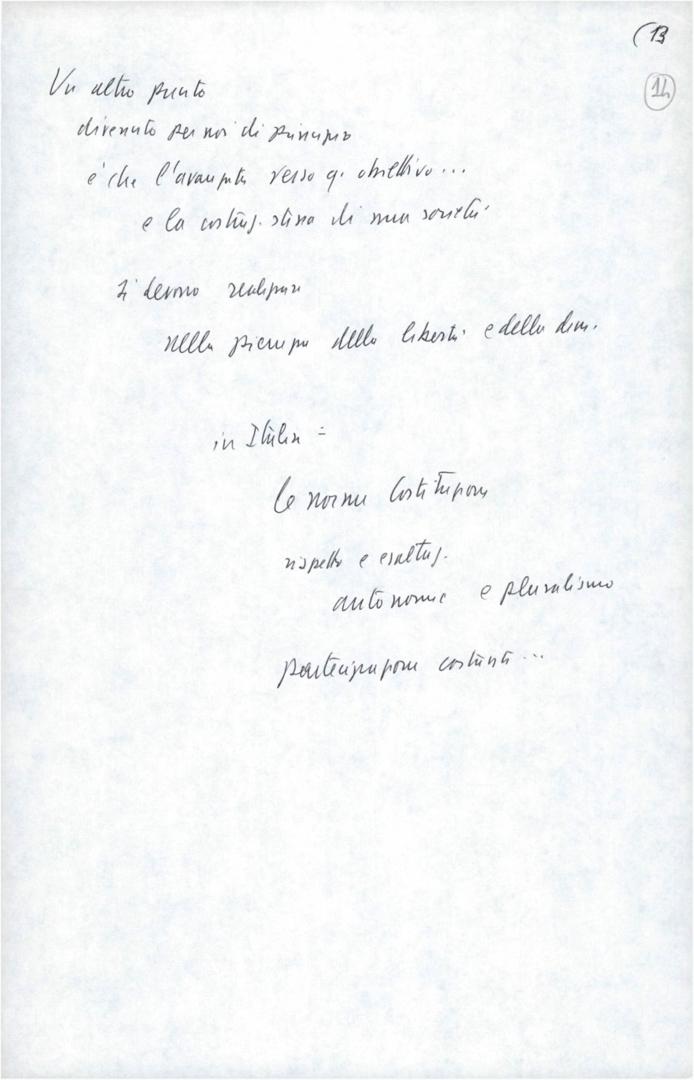 (13
14
Un altro punto
divenuto per noi di principio
è che l'avanzata verso q. obiettivo...
e la costruz. stessa di una società
si devono realizzare
nella pienezza della libertà e della dem.
in Italia =
le norme Costituzione
rispetto e esaltaz.
autonomie e pluralismo
partecipazione costante...